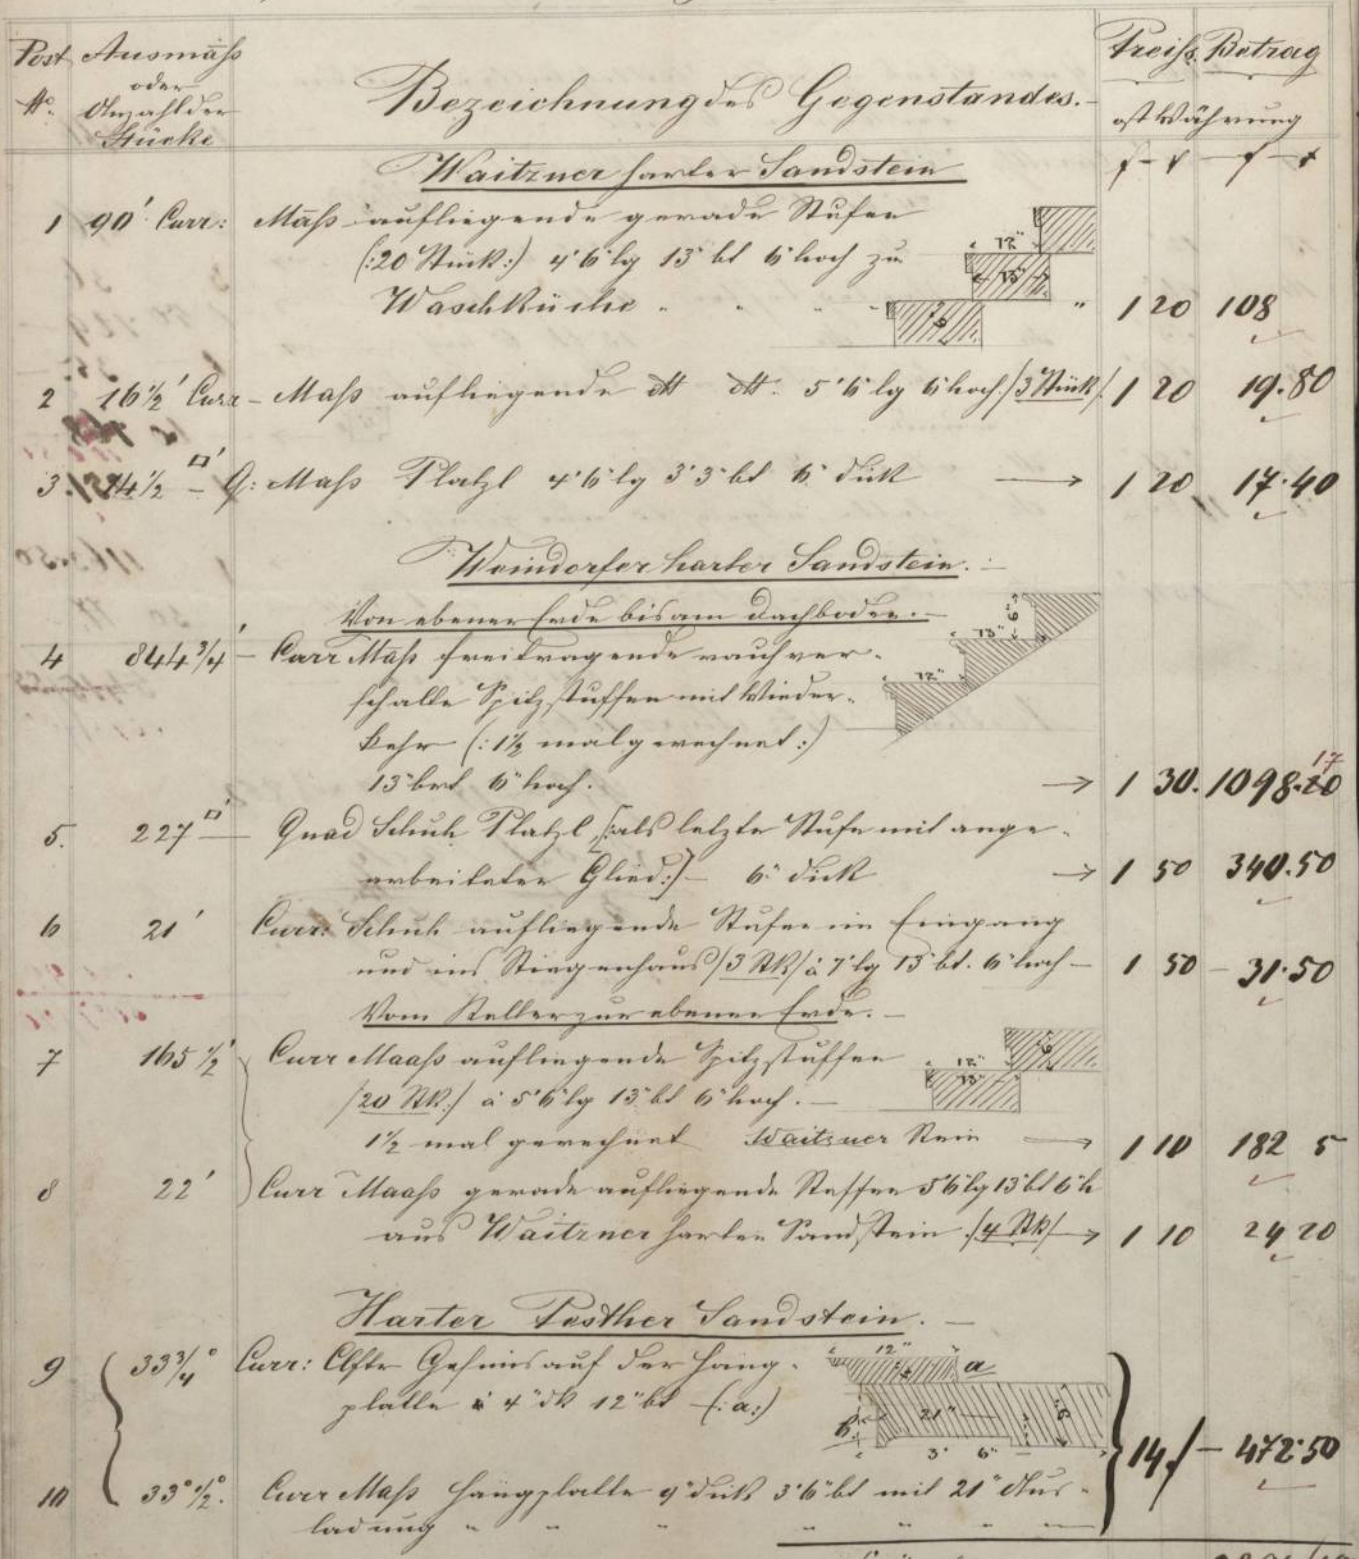 Post Ausmaß Preiß. Betrag
oder
No. Anzahl der Bezeichnung des Gegenstandes.
Stücke öst Währung
f – x – f – x
Waitzner harter Sandstein
1 90' Curr: Maß aufliegende gerade Stufen
(:20 Stück:) 4'6" lg 13" bt 6" hoch zu 12"
Waschküche " " " 13" " 1 20 108
6
2 16 1/2' Curr – Maß aufliegende dtt dtt. 5'6" lg 6" hoch /3 Stück/. 1 20 19.80
3. 14 1/2 □' – Q: Maß Platzl 4'6" lg 3'3" bt 6" dick → 1 20 17.40
Weindorfer harter Sandstein.
Von ebener Erde bis am Dachboden. –
4 844 3/4' – Curr Maß freitragende rauh ver- 13" 6"
schalte Spitzstuffen mit Wieder- 12"
kehr (: 1 1/2 mal gerechnet :)
13" brt 6" hoch. → 1 30. 1098.20 17
5. 227 □' – Quad Schuh Platzl [:als letzte Stufe mit ange-
arbeiteter Glied:] – 6" dick → 1 50 340.50
6 21' Curr: Schuh aufliegende Stufen im Eingang
und ins Stiegenhaus /3 Stk/ à 7' lg 13" bt. 6" hoch – 1 50 – 31.50
Vom Keller zur ebenen Erde. –
7 165 1/2' Curr Maaß aufliegende Spitzstuffen 12" 6
/20 Stk./ à 5'6" lg 13" bt 6" hoch. – 13"
1 1/2 mal gerechnet Waitzner Stein → 1 10 182 5
8 22' Curr Maaß gerade aufliegende Staffen 5'6" lg 13" bt 6" h
aus Waitzner harten Sandstein /4 Stk/ → 1 10 24 20
Harter Pesther Sandstein. –
9 33 3/4° Curr: Clftr Gesims auf der Häng- 12" a
platte à 4" dk 12" bt (:a:) 21" 9"
3" 6" 14 f – 472.50
10 33° 1/2°. Curr Maß Hängplatte 9" dick 3'6" bt mit 21" Aus-
ladung " " " " " "